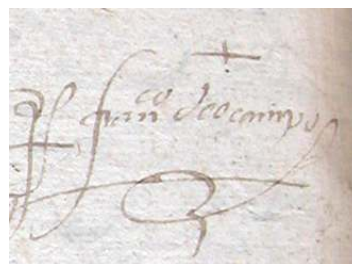 franco deocampo